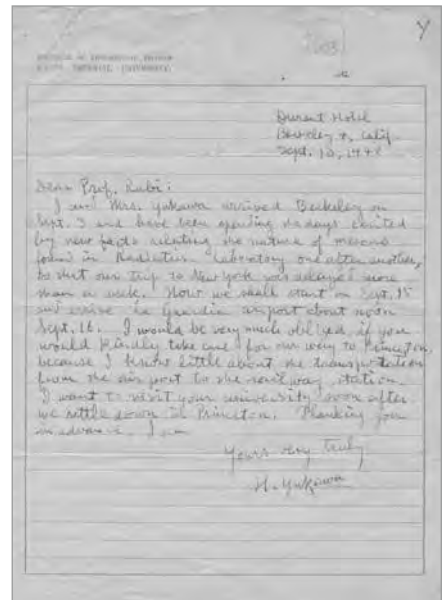 Durant Hotel
Berkeley 4, Calif.
Sept. 10, 1948
Dear Prof. Rabi:
I and Mrs. Yukawa arrived Berkeley on
Sept. 3 and have been spending days excited
by new facts relating the nature of mesons
found in Radiation Laboratory one after another,
so that our trip to New York was delayed more
than a week. Now we shall start on Sept. 15
and arrive La Guardia airport about noon
Sept. 16. I would be very much obliged, if you
would kindly take care for our way to Princeton,
because I know little about the transportation
from the air port to the railway station.
I want to visit your university soon after
we settle down in Princeton. Thanking you
in advance, I am
Yours very truly
H. Yukawa